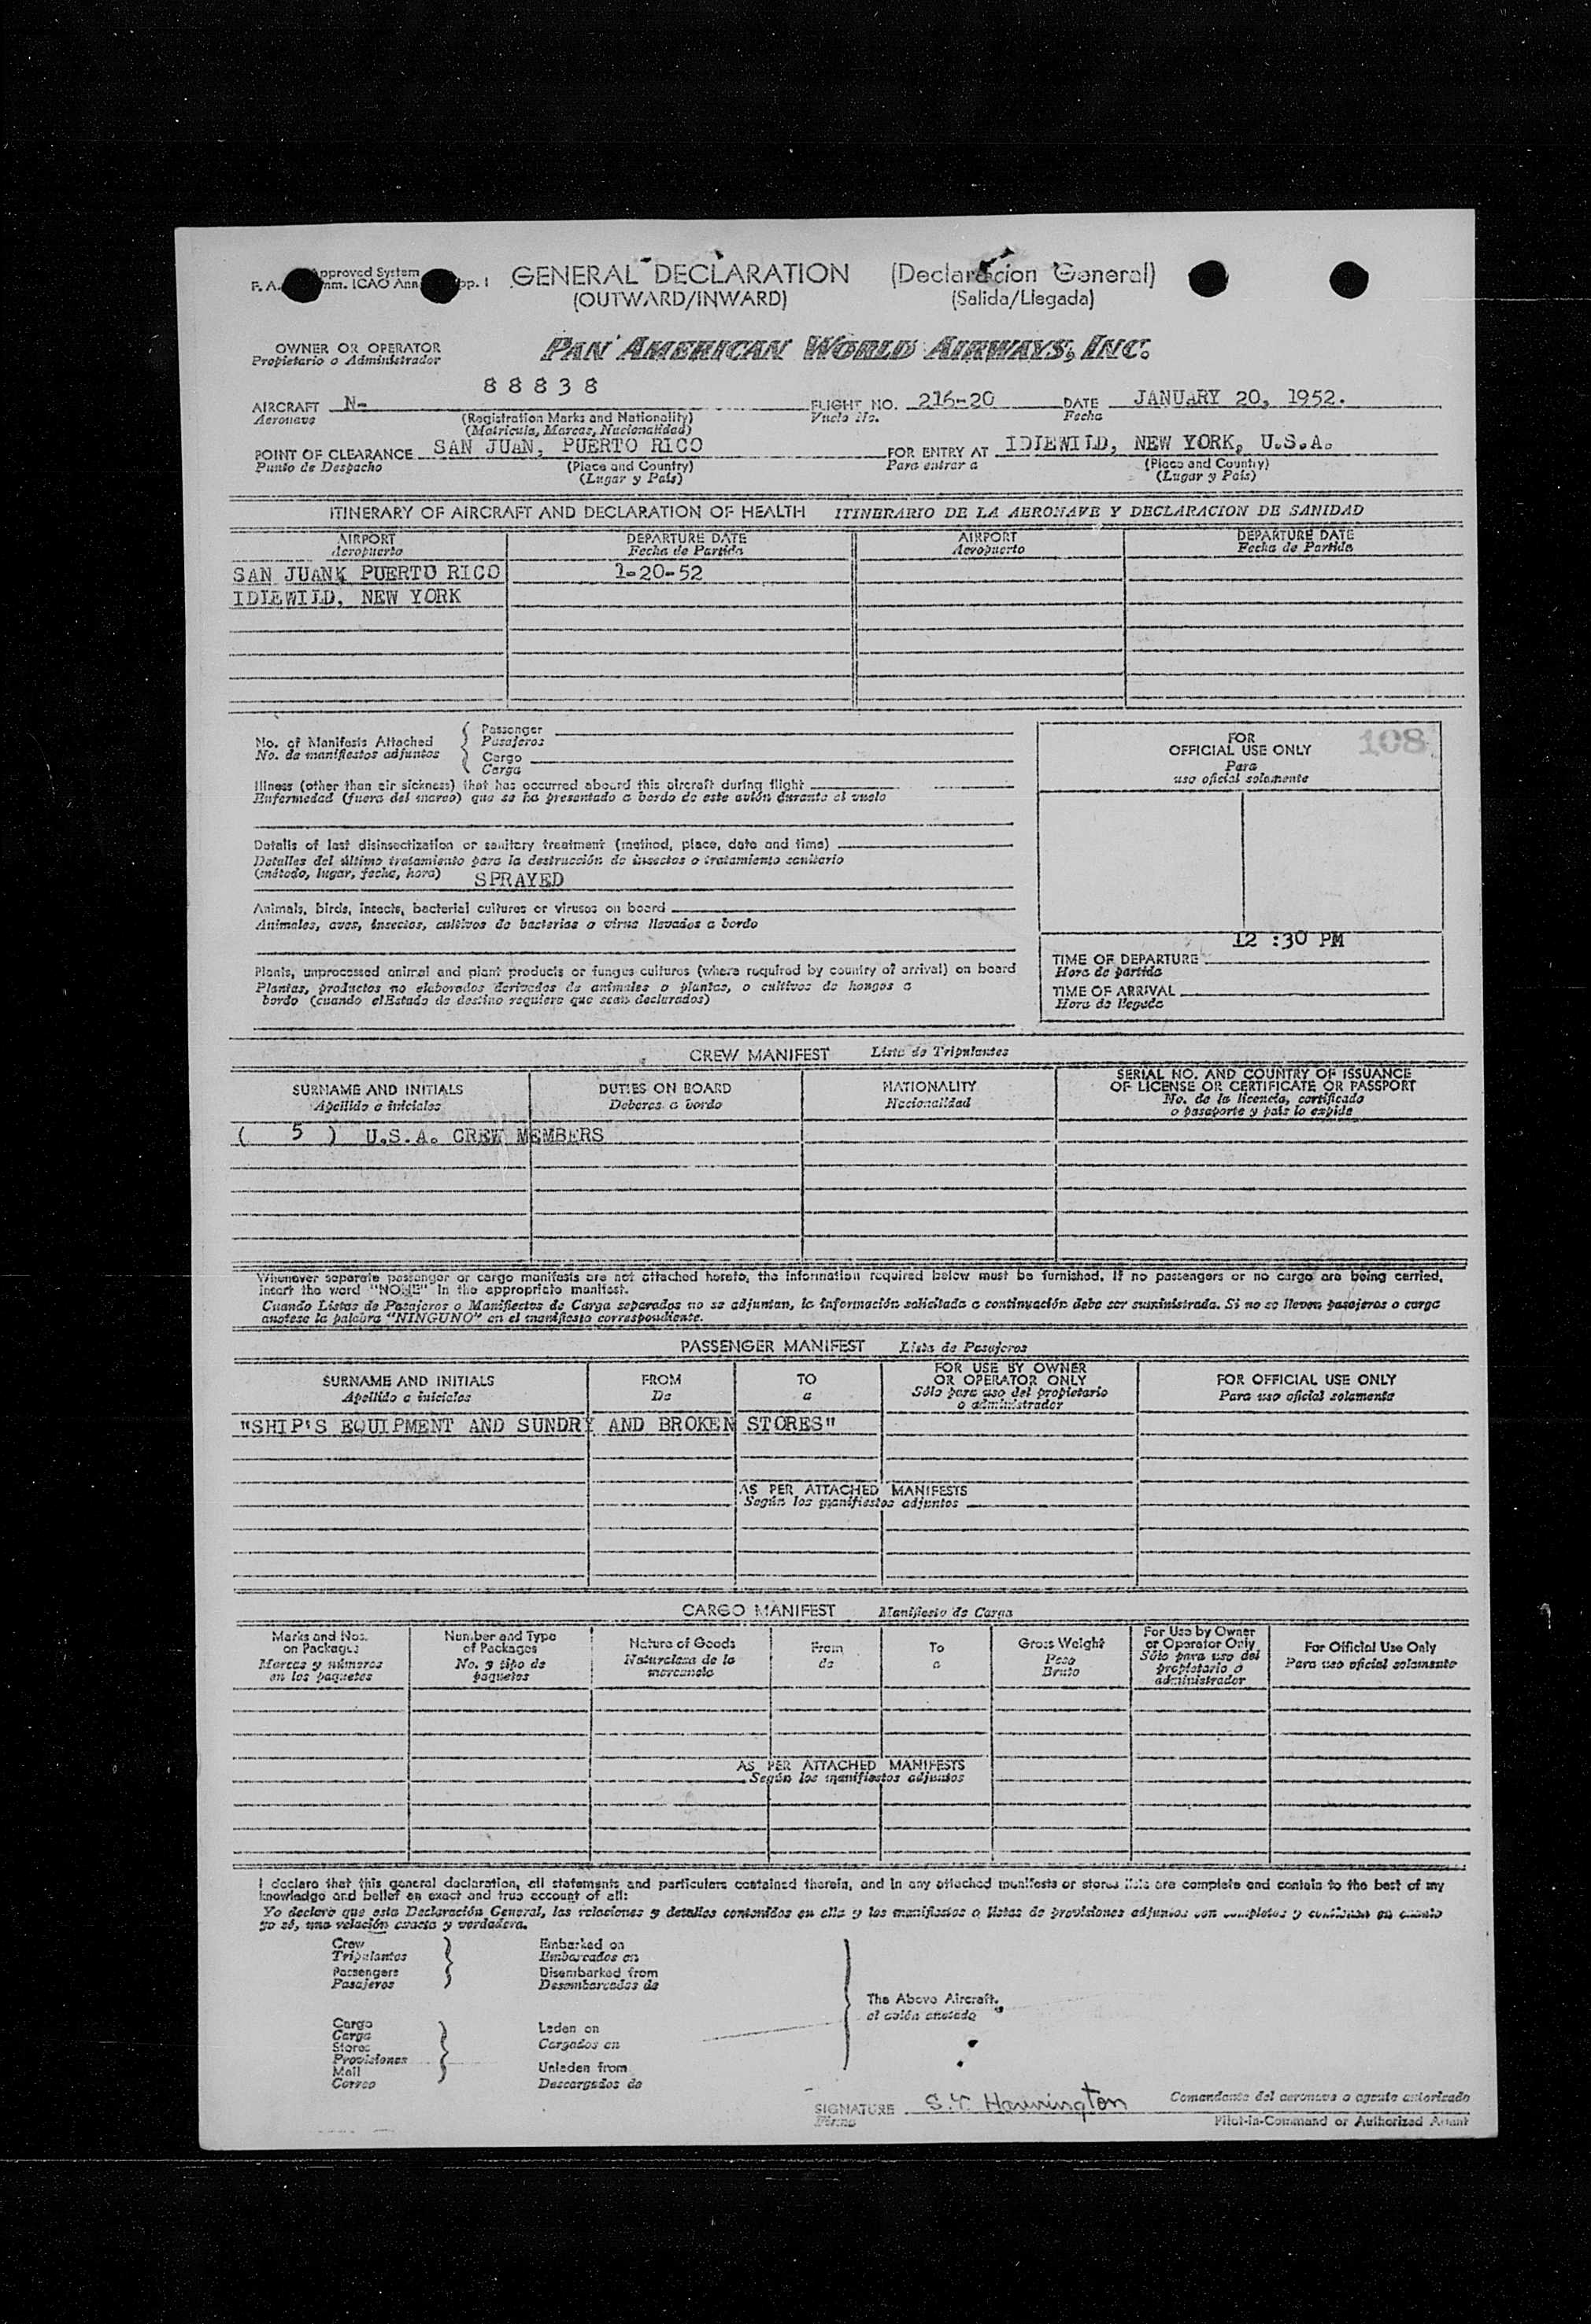 GENERAL DECLARATION (Declaracion General)
pproved System
(OUTWARD/INWARD) (Salida/Llegada)
OWNER OR OPERATOR
Propietario o Administrador
PAN AMERICAN WORLD AIRWAYS, INC.
88838
AIRCRAFT N- FLIGHT NO. 216-20 DATE JANUARY 20, 1952.
Aeronave (Registration Marks and Nationality) Vuelo No. Fecha
(Matricula, Marcas, Nacionalidad)
POINT OF CLEARANCE SAN JUAN, PUERTO RICO FOR ENTRY AT IDIEWILD, NEW YORK, U.S.A.
Punto de Despacho (Place and Country) Para entrar a (Place and Country)
(Lugar y País) (Lugar y País)
ITINERARY OF AIRCRAFT AND DECLARATION OF HEALTH ITINERARIO DE LA AERONAVE Y DECLARACION DE SANIDAD
AIRPORT DEPARTURE DATE AIRPORT DEPARTURE DATE
Aeropuerto Fecha de Partida Aeropuerto Fecha de Partida
SAN JUANK PUERTO RICO 1-20-52
IDIEWILD, NEW YORK
No. of Manifests Attached
No. de manifiestos adjuntos
Passenger
Pasajeros
Cargo
Carga
Illness (other than air sickness) that has occurred aboard this aircraft during flight
Enfermedad (fuera del mareo) que se ha presentado a bordo de este avión durante el vuelo
Details of last disinsectization or sanitary treatment (method, place, date and time)
Detalles del último tratamiento para la destrucción de insectos o tratamiento sanitario
(método, lugar, fecha, hora) SPRAYED
Animals, birds, insects, bacterial cultures or viruses on board
Animales, aves, insectos, cultivos de bacterias o virus llevados a bordo
Plants, unprocessed animal and plant products or fungus cultures (where required by country of arrival) on board
Plantas, productos no elaborados derivados de animales o plantas, o cultivos de hongos a
bordo (cuando elEstado de destino requiere que sean declarados)
FOR
OFFICIAL USE ONLY
108
Para
uso oficial solamente
12 :30 PM
TIME OF DEPARTURE
Hora de partida
TIME OF ARRIVAL
Hora de llegada
CREW MANIFEST Lista de Tripulantes
SURNAME AND INITIALS DUTIES ON BOARD NATIONALITY SERIAL NO. AND COUNTRY OF ISSUANCE
OF LICENSE OR CERTIFICATE OR PASSPORT
Apellido e iniciales Deberes a bordo Nacionalidad No. de la licencia, certificado
o pasaporte y país lo expide
( 5 ) U.S.A. CREW MEMBERS
Whenever separate passenger or cargo manifests are not attached hereto, the information required below must be furnished. If no passengers or no cargo are being carried,
insert the word "NONE" in the appropriate manifest.
Cuando Listas de Pasajeros o Manifiestos de Carga separados no se adjuntan, la información solicitada a continuación debe ser suministrada. Si no se lleven pasajeros o carga
anotese la palabra "NINGUNO" en el manifiesto correspondiente.
PASSENGER MANIFEST Lista de Pasajeros
SURNAME AND INITIALS FROM TO FOR USE BY OWNER
OR OPERATOR ONLY FOR OFFICIAL USE ONLY
Apellido e iniciales De a Sólo para uso del propietario
o administrador Para uso oficial solamente
"SHIP'S EQUIPMENT AND SUNDRY AND BROKEN STORES"
AS PER ATTACHED MANIFESTS
Según los manifiestos adjuntos
CARGO MANIFEST Manifiesto de Carga
Marks and Nos.
on Packages
Marcas y números
en los paquetes
Number and Type
of Packages
No. y tipo de
paquetes
Nature of Goods
Naturaleza de la
mercancía
From
de
To
a
Gross Weight
Peso
Bruto
For Use by Owner
or Operator Only
Sólo para uso del
propietario o
administrador
For Official Use Only
Para uso oficial solamente
AS PER ATTACHED MANIFESTS
Según los manifiestos adjuntos
I declare that this general declaration, all statements and particulars contained therein, and in any attached manifests or stores lists are complete and contain to the best of my
knowledge and belief an exact and true account of all:
Yo declaro que esta Declaración General, las relaciones y detalles contenidos en ella y los manifiestos o listas de provisiones adjuntos son completos y contienen en cuanto
yo sé, una relación exacta y verdadera.
Crew
Tripulantes
Passengers
Pasajeros
Embarked on
Embarcados en
Disembarked from
Desembarcados de
The Above Aircraft.
el avión anotado
Cargo
Carga
Stores
Provisiones
Mail
Correo
Laden on
Cargados en
Unladen from
Descargados de
SIGNATURE S.Y. Harrington
Firma
Comandante del aeronave o agente autorizado
Pilot-in-Command or Authorized Agent